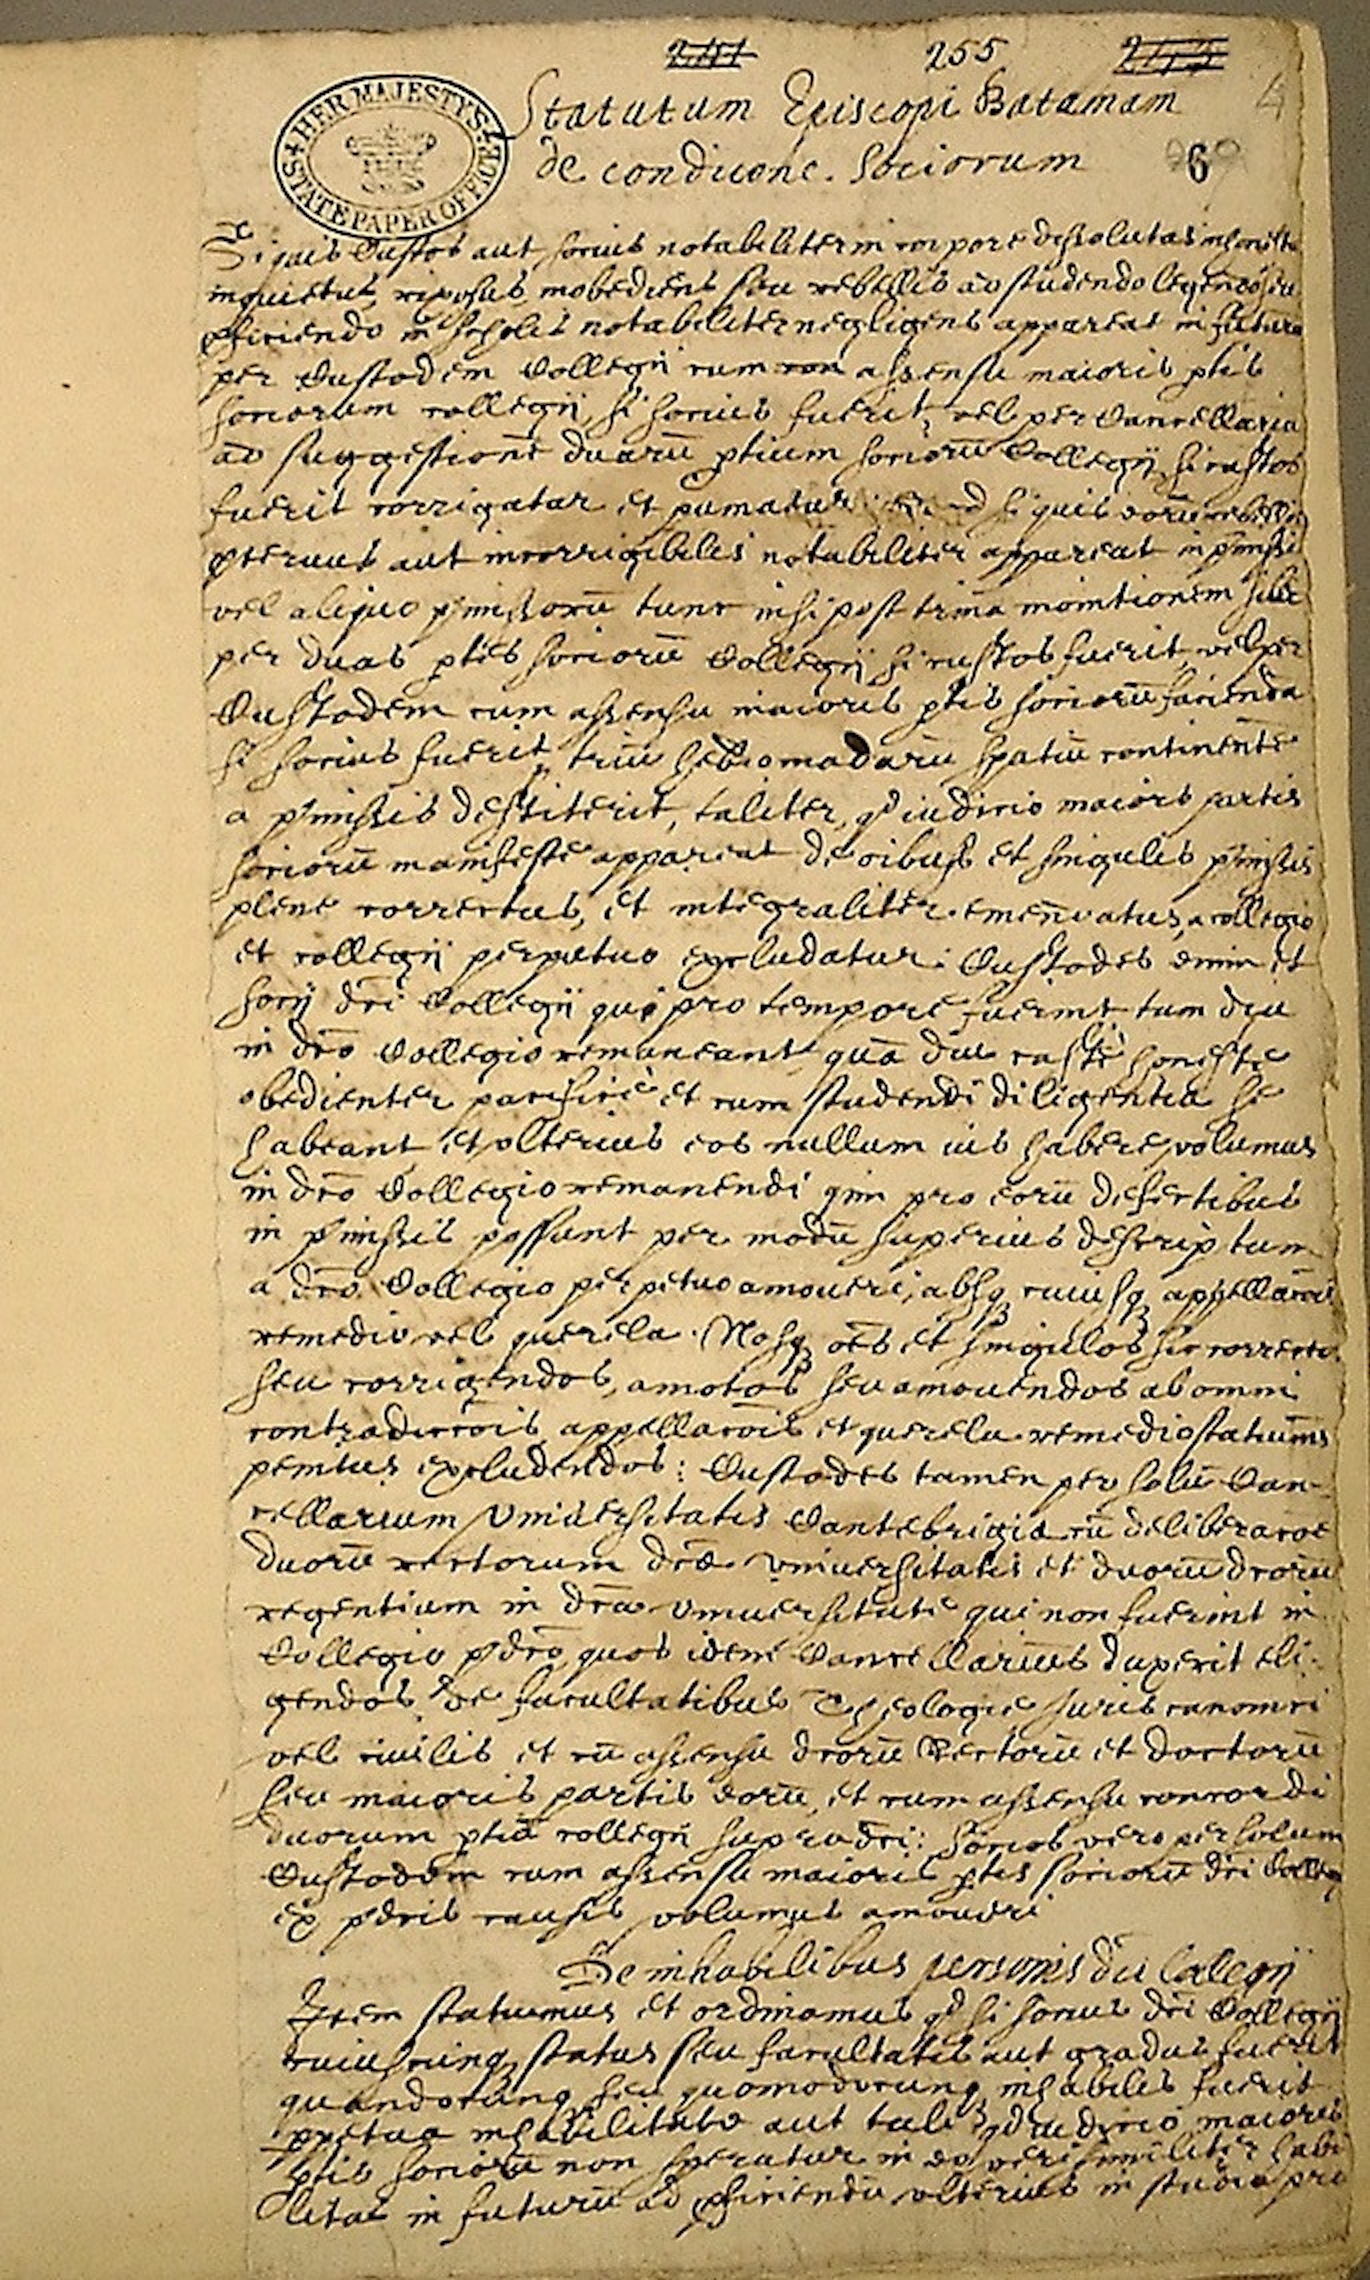 255
Statutum Episcopi Batamam
de condicone. Sociorum
HER MAJESTY'S STATE PAPER OFFICE
6
Si quis Custos aut socius notabiliter in corpore dissolutus inhonestus
inquietus, rixosus, inobediens seu rebellis ad studendo legendo seu
pficiendo in scholis notabiliter negligens appareat in futuro
per Custodem Collegij cum assensu maioris ptis
sociorum collegij, si socius fuerit, vel per Cancellariu
ad suggestione duarū ptium sociorū Collegij, si custos
fuerit corrigatur et puniatur. si quis eorū rebellis
pteruus aut incorrigibilis notabiliter appareat in pmissis
vel aliquo pmissorū tunc nisi post trina monitionem sibi
per duas ptes sociorū Collegij si custos fuerit, vel per
Custodem cum assensu maioris ptis sociorū facienda
si socius fuerit, triū hebdomadarū spatiū continente
a pmissis destiterit, taliter, qd iudicio maioris partis
sociorū manifeste appareat de oibus et singulis pmissis
plene correctus, et integraliter emendatus, a collegio
et collegij perpetuo excludatur: Custodes enim et
socij dci Collegij qui pro tempore fuerint tam diu
in dco Collegio remaneant, quā diu caste honeste
obedienter pacifice et cum studendi diligentia se
habeant et vlterius eos nullum ius habere volumus
in dco Collegio remanendi qin pro eorū defectibus
in pmissis possunt per modū superius descriptum
a dco Collegio perpetuo amoueri, absq cuiusq appellacois
remedio vel querela. Nosq oēs et singulos sic correctos
seu corrigendos, amotos seu amouendos ab omni
contradiccois appellacois et querela remedio statuims
penitus excludendos: Custodes tamen per solū Can-
cellarium Vniuersitatis Cantebrigia cū deliberacoe
duorū rectorum dce vniuersitatis et duorū dcorū
regentium in dca vniuersitate qui non fuerint in
Collegio pdco, quos idem Cancellarius duxerit eli-
gendos de facultatibus Theologie Juris canonici
vel ciuilis et cū assensu dcorū Rectorū et doctorū
seu maioris partis eorū, et cum assensu concordi
duorum ptiū collegij supradci: socios vero per solum
Custodem cum assensu maioris ptis sociorū dci Colleg
ex pdcis causis volumus amoueri
De inhabilibus personis dci Collegij
Item statuimus et ordinamus qd si socius dci Collegij
cuiuscunq status seu facultatis aut gradus fuerit
quandocunq seu quomodocunq inhabilis fuerit
ppetua inhabilitate aut tali qd iudicio maioris
ptis sociorū non speratur in eo verisimiliter habi
litas in futurū ad pficiendū vlterius in studio pro